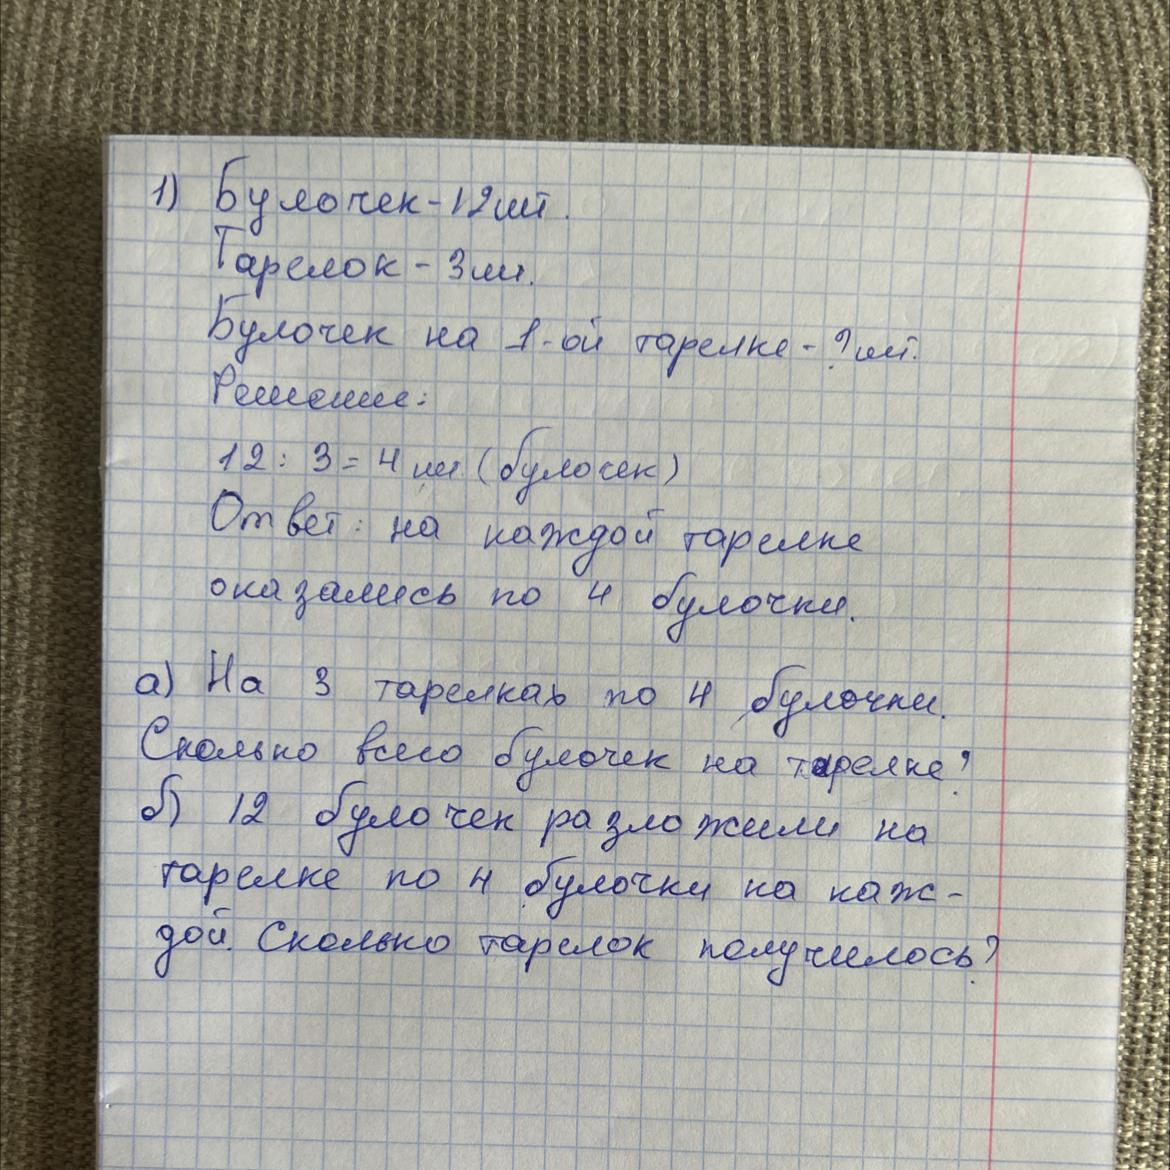 1) Булочек - 12 шт.
Тарелок - 3 шт.
Булочек на 1-ой тарелке - ? шт.
Решение:
12 : 3 = 4 шт. (булочек)
Ответ: на каждой тарелке
оказались по 4 булочки.
а) На 3 тарелках по 4 булочки.
Сколько всего булочек на тарелке?
б) 12 булочек разложили на
тарелке по 4 булочки на каж-
дой. Сколько тарелок получилось?